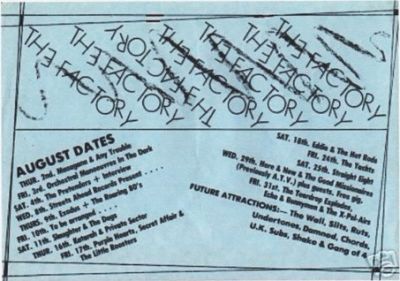 THE FACTORY
THE FACTORY
THE FACTORY
THE FACTORY
THE FACTORY
THE FACTORY
AUGUST DATES
THUR. 2nd. Monogone & Any Trouble
FRI. 3rd. Orchestral Manoeuvres In The Dark
SAT. 4th. The Pretenders + Interview
WED. 8th. Streets Ahead Records Present . . . .
THURS. 9th. Exodus + The Running 80's
FRI. 10th. To be arranged . . . .
SAT. 11th. Slaughter & The Dogs
THUR. 16th. Naturals & Private Sector
FRI. 17th. Purple Hearts, Secret Affair &
The Little Roosters
SAT. 18th. Eddie & The Hot Rods
FRI. 24th. The Yachts
SAT. 25th. Straight Eight
WED. 29th. Here & Now & The Good Missionaries
(Previously A.T.V.) plus guests. Free gig.
FRI. 31st. The Teardrop Explodes
Echo & Bunnymen & The X-Pel-Airs
FUTURE ATTRACTIONS:— The Wall, Slits, Ruts,
Undertones, Damned, Chords,
U.K. Subs, Shake & Gang of 4